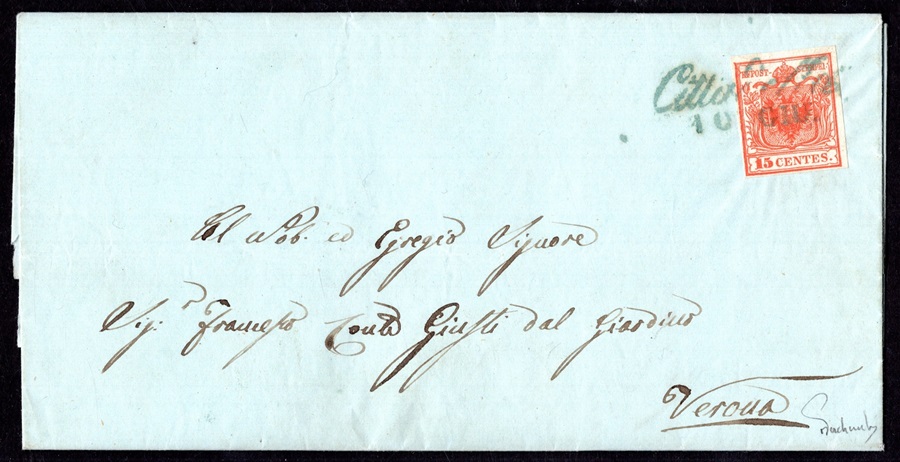 Cittad
10 GIU.
KK POST-STEMPEL
15 CENTES.
Al Nob. ed Egregio Signore
Sig.r Francesco Conte Giusti dal Giardino
Verona